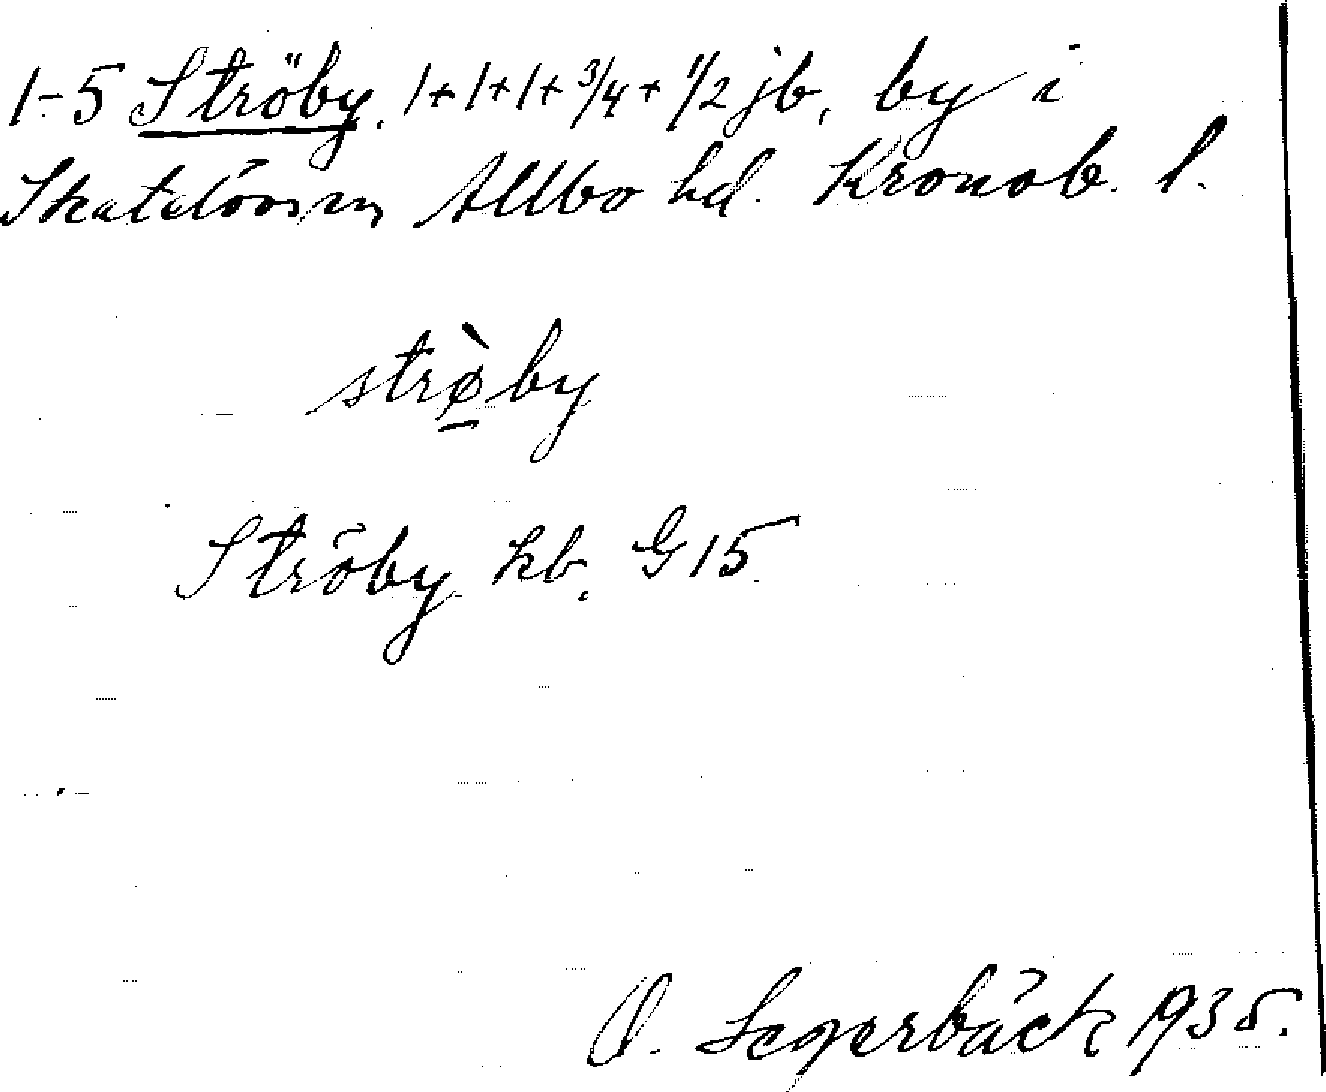 1-5 Ströby, 1+1+1+3/4+1/2 jb, by i
Skatelövs sn Allbo hd. Kronob. l.
strø̀by
Ströby kb. G15
O. Segerbäck 1935.